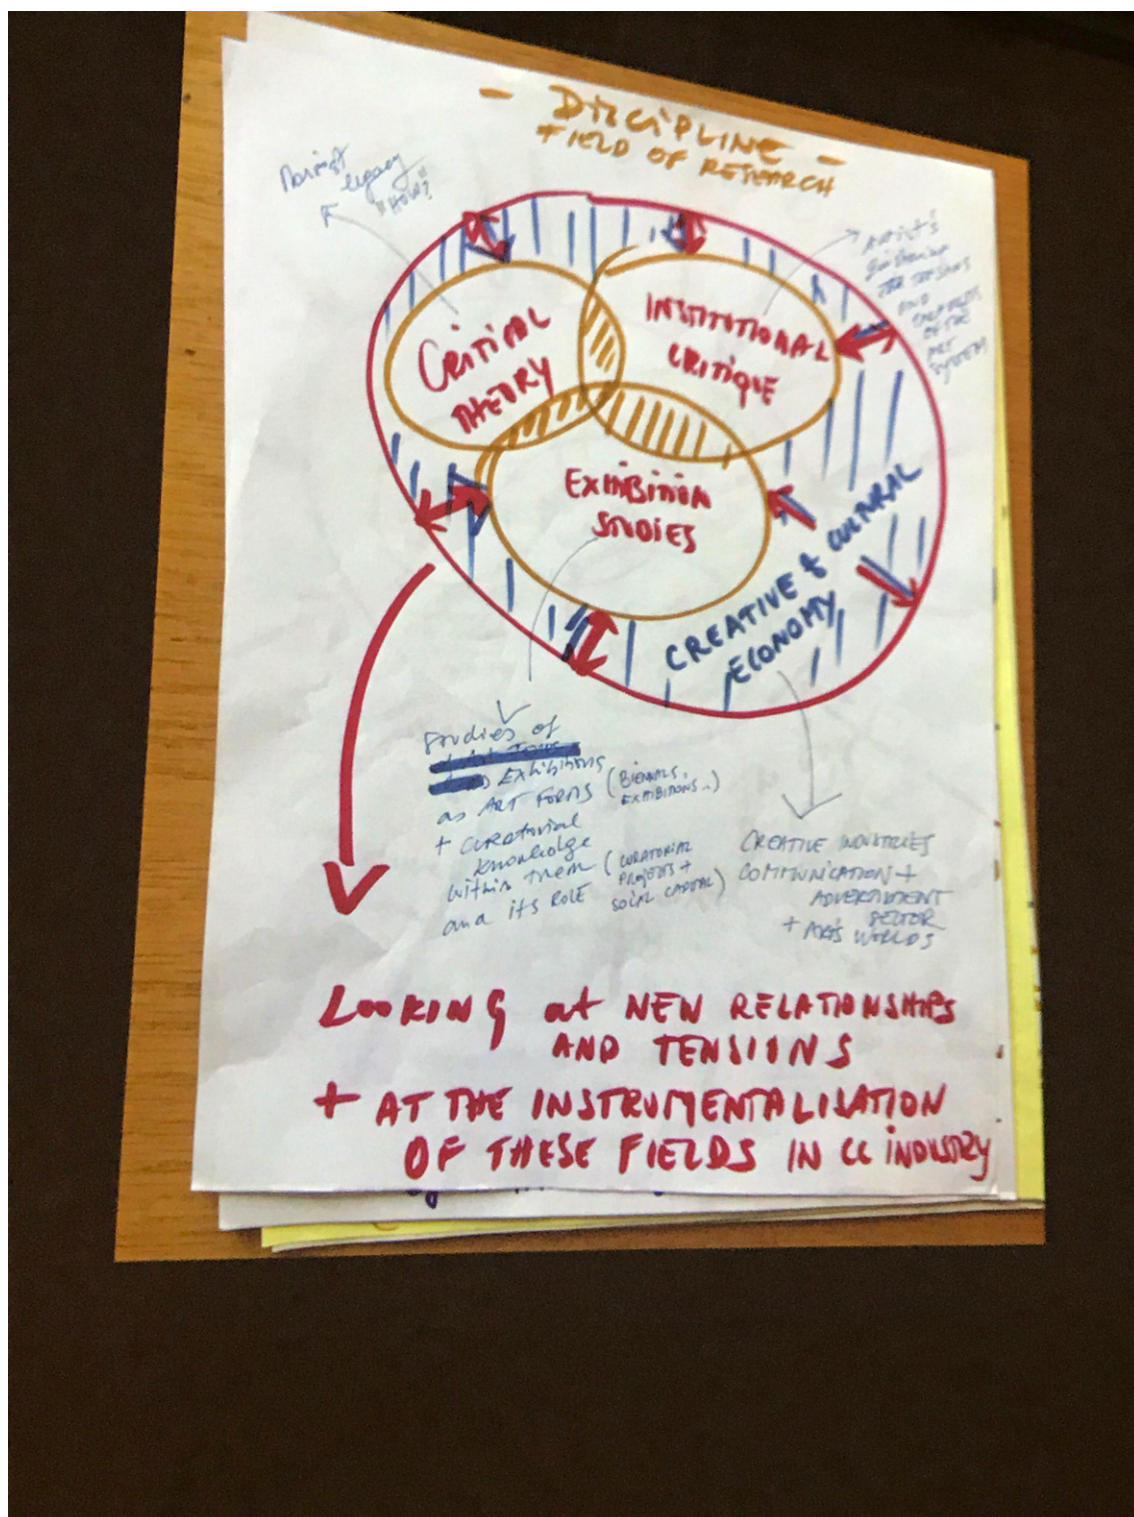 - DISCIPLINE -
+ FIELD OF RESEARCH
Marxist
legacy
"HOW?"
ARTISTS
THE TENSIONS
AND
OF THE
ART
SYSTEM
CRITICAL
THEORY
INSTITUTIONAL
CRITIQUE
EXHIBITION
STUDIES
CREATIVE & CULTURAL
ECONOMY
Studies of
EXHIBITIONS
as ART FORMS (BIENNALS,
EXHIBITIONS..)
+ curatorial
knowledge
within them (CURATORIAL
PROJECTS +
SOCIAL CAPITAL)
and its ROLE
CREATIVE INDUSTRIES
COMMUNICATION +
ADVERTISMENT
SECTOR
+ ARTS WORLDS
LOOKING at NEW RELATIONSHIPS
AND TENSIONS
+ AT THE INSTRUMENTALISATION
OF THESE FIELDS IN CC INDUSTRY